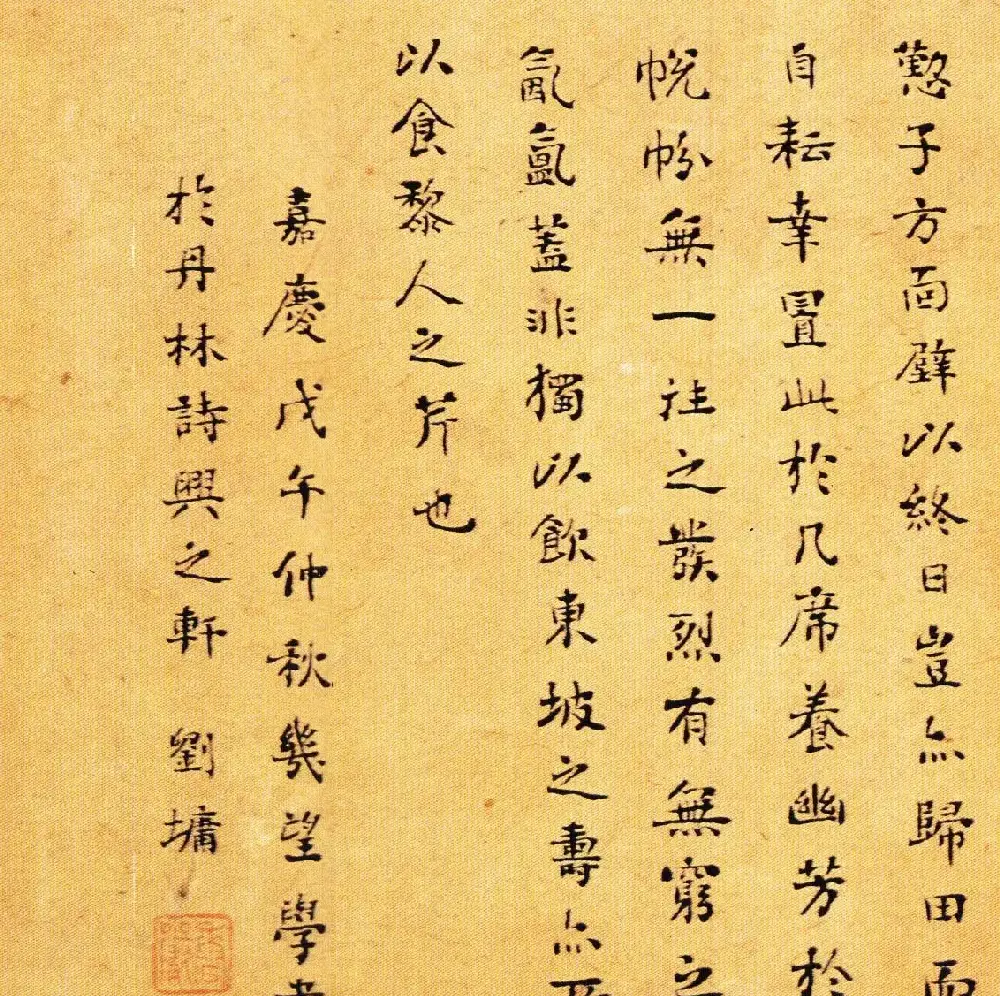 懃子方面壁以終日豈亦歸田而
自耘幸置此於几席養幽芳於
帨帉無一往之發烈有無窮之
氤氳蓋非獨以飲東坡之壽亦所
以食黎人之芹也
嘉慶戊午仲秋幾望學書
於丹林詩興之軒 劉墉